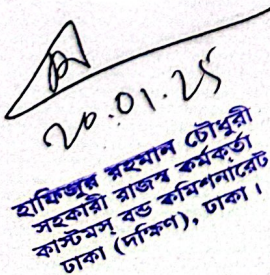 20.01.25
হাফিজুর রহমান চৌধুরী
সহকারী রাজস্ব কর্মকর্তা
কাস্টমস্ বন্ড কমিশনারেট
ঢাকা (দক্ষিণ), ঢাকা।